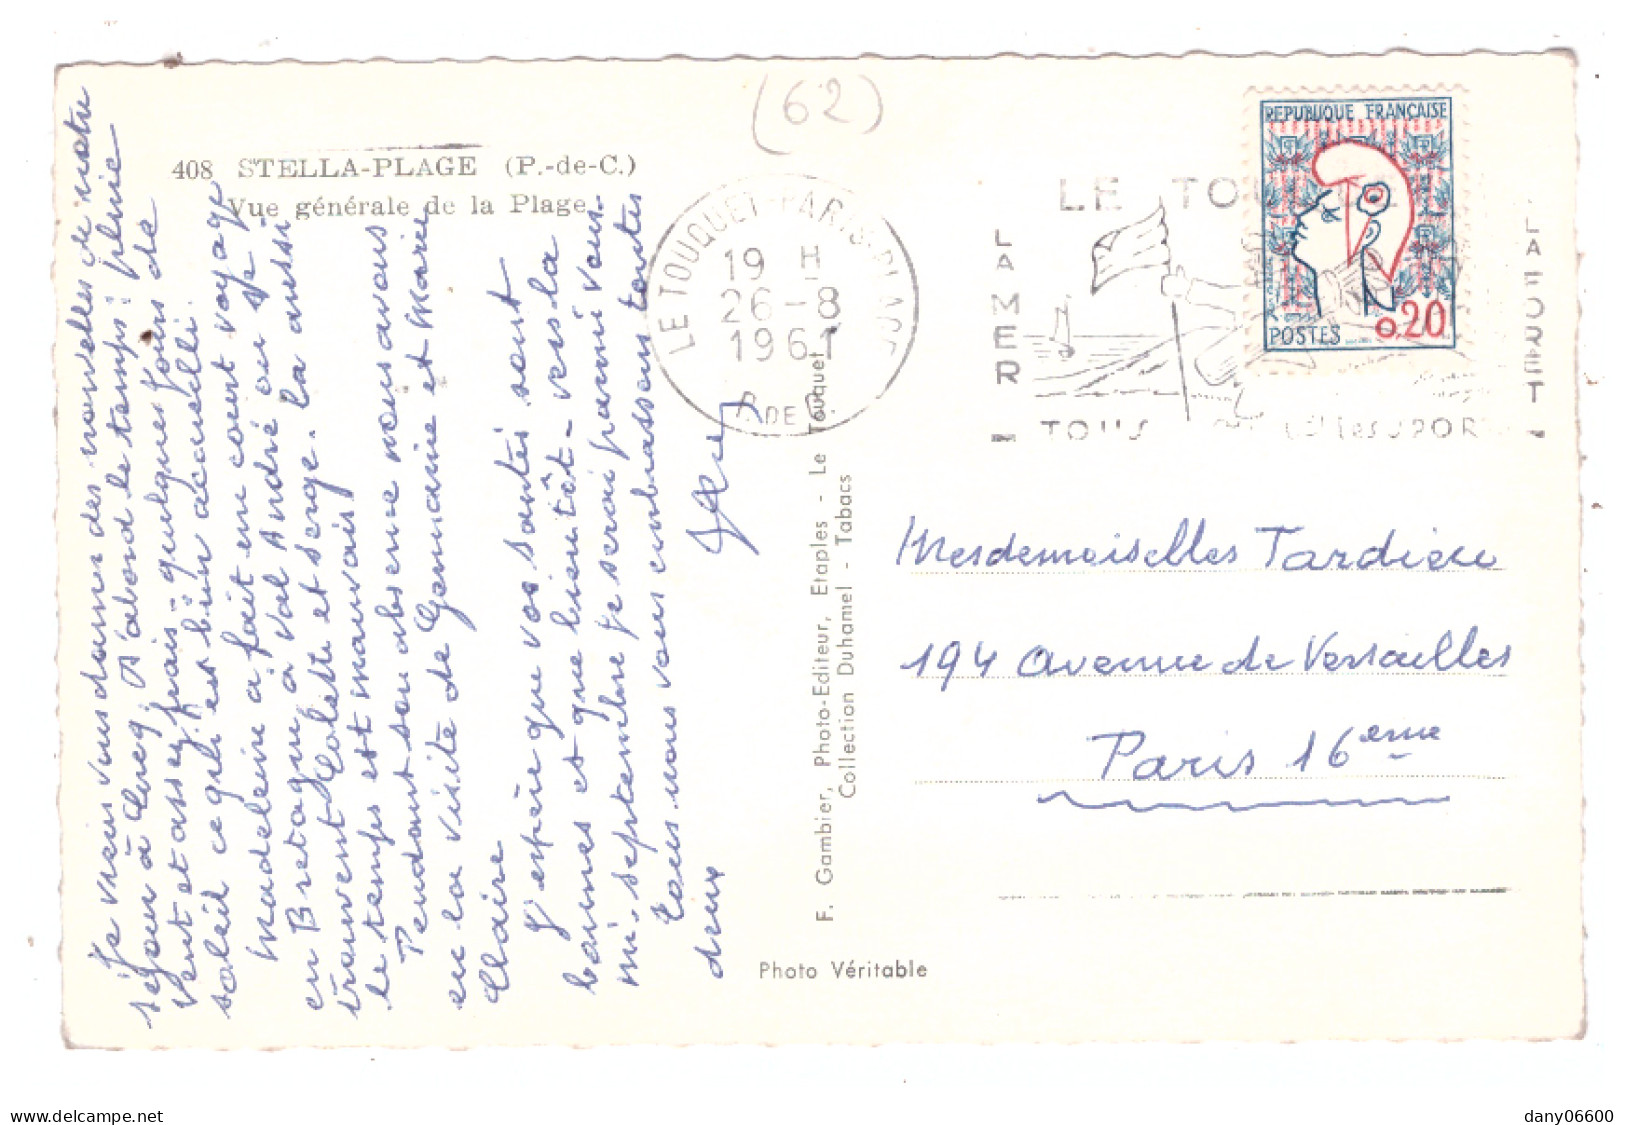 (62)
408 STELLA-PLAGE (P.-de-C.)
Vue générale de la Plage
Je viens vous donner des nouvelles de notre
séjour à Cucq. D'abord le temps : pluie
vent et assez frais - quelques jours de
soleil ce qui est bien accueilli.
Madeleine a fait un court voyage
en Bretagne à Val André où se
trouvent Colette et Serge. Là aussi
le temps est mauvais.
Pendant son absence nous avons
eu la visite de Germaine et Marie
Claire
J'espère que vos santés sont
bonnes et que bientôt - vers la
mi-septembre je serai parmi vous.
Tous nous vous embrassons toutes
deux
LE TOUQUET-PARIS-PLAGE
19 H
26-8
1961
P. DE C.
LE TOU
LA MER
LA FORET
TOUS LES SPOR
REPUBLIQUE FRANÇAISE
POSTES
0,20
F. Gambier, Photo-Editeur, Etaples - Le Touquet
Collection Duhamel - Tabacs
Photo Véritable
Mesdemoiselles Tardieu
194 Avenue de Versailles
Paris 16eme
www.delcampe.net
dany06600